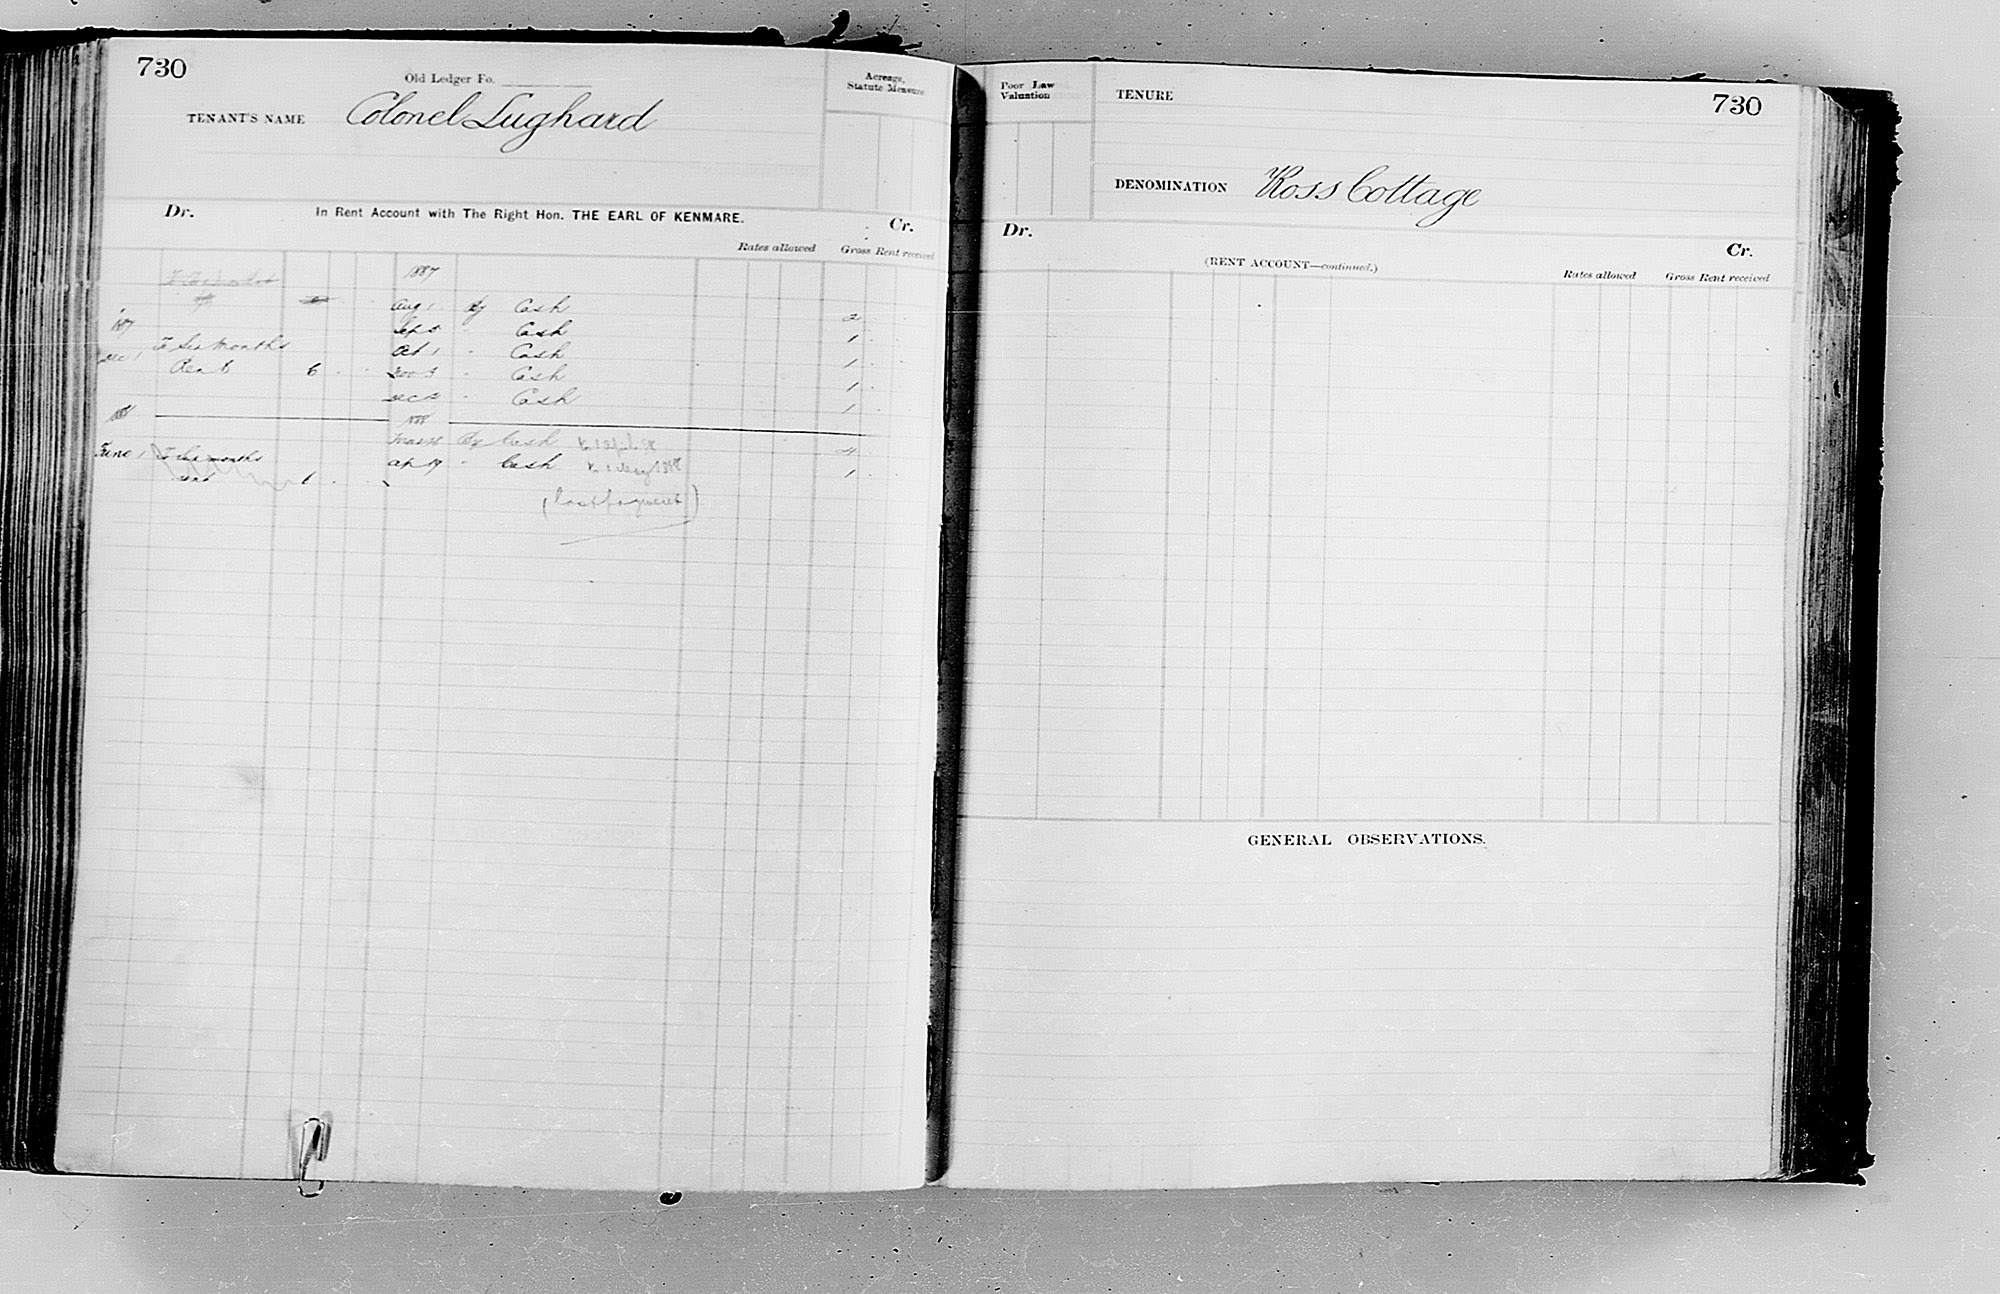 730
Old Ledger Fo.
Acreage,
Statute Measure
TENANT'S NAME Colonel Lughard
Dr. In Rent Account with The Right Hon. THE EARL OF KENMARE. Cr.
Rates allowed Gross Rent received
1887
Aug 1 By Cash 2
Sept Cash 1
1887
Dec 1 To Six Months Oct 1 " Cash 1
Rent 6 Nov 3 " Cash 1
Dec 2 " Cash 1
1888 1888
By Cash 4
June 1 To Six months Ap 19 " Cash to 1 May 1888 1
Rent
(last payment)
Poor Law
Valuation
TENURE
730
DENOMINATION Ross Cottage
Dr. Cr.
(RENT ACCOUNT—continued.)
Rates allowed Gross Rent received
GENERAL OBSERVATIONS.